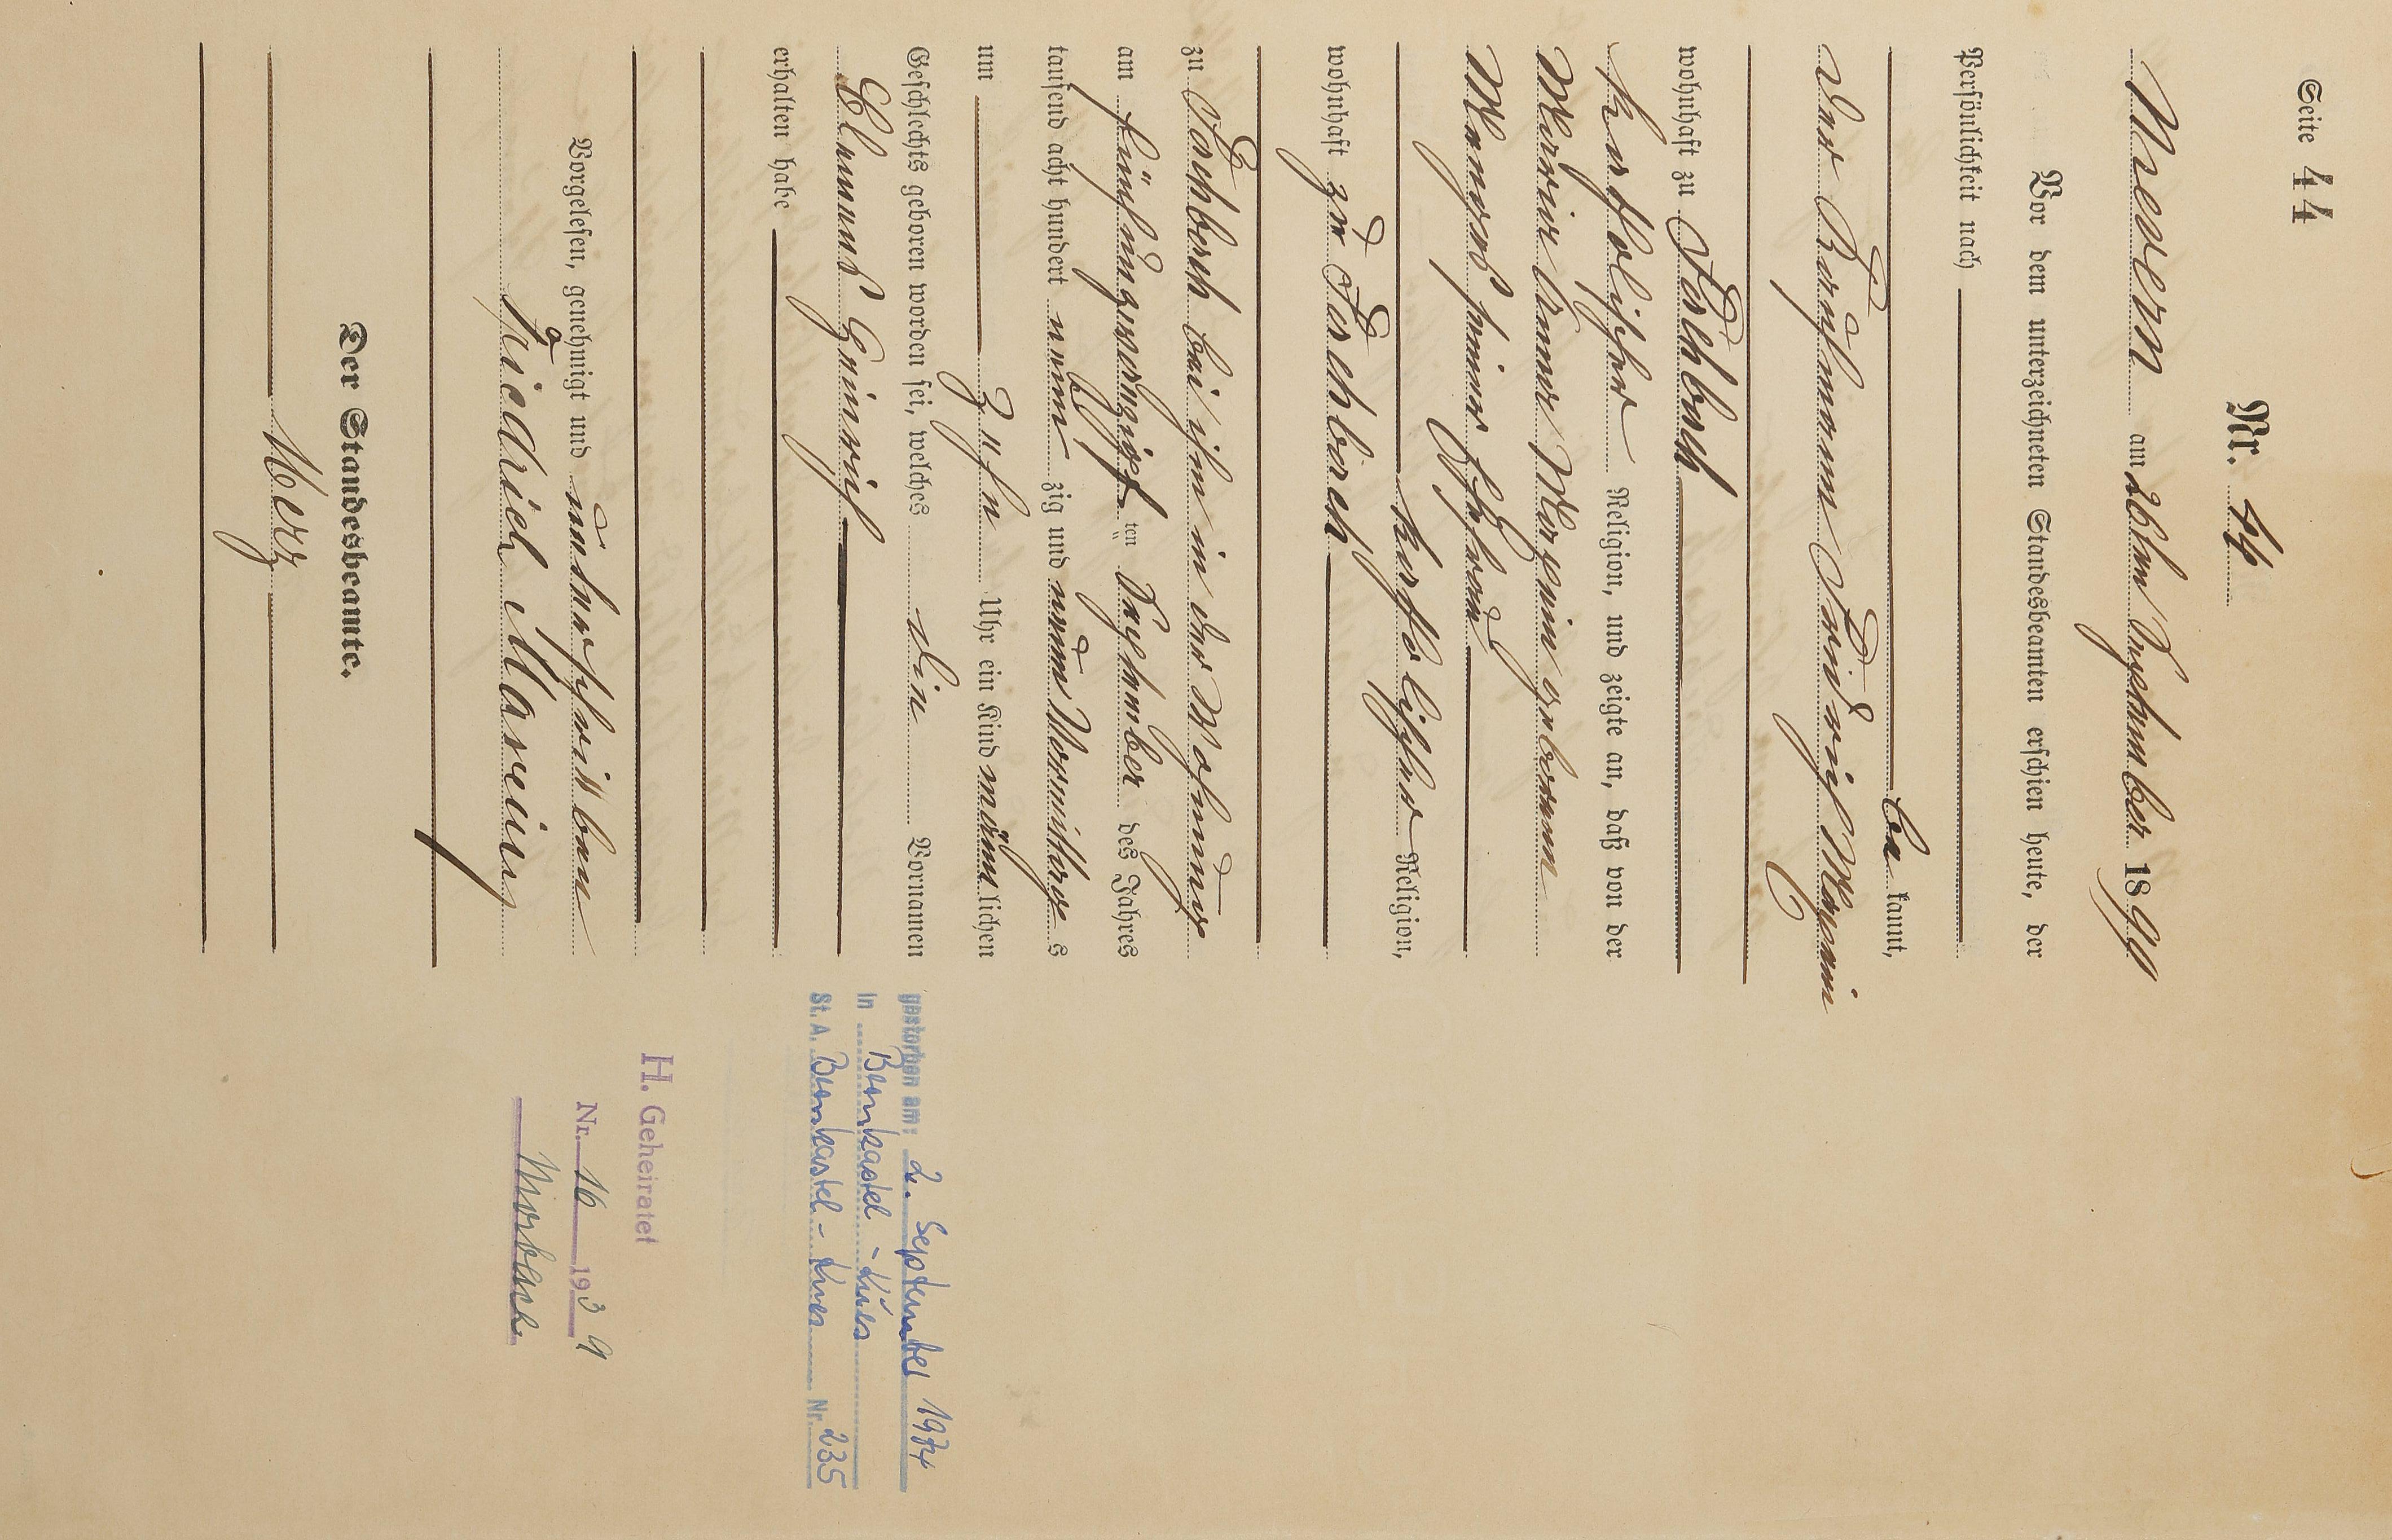 Seite 44
Nr. 44
Medern am 26ten September 1899
Vor dem unterzeichneten Standesbeamten erschien heute, der
Persönlichkeit nach
bekannt,
der Kaufmann Friedrich
wohnhaft zu
katholischer Religion, und zeigte an, daß von der
Maria Anna geborene
seiner Ehefrau
katholischer Religion,
wohnhaft zu
zu bei ihm in der Wohnung
am fünfundzwanzigsten September des Jahres
tausend acht hundert neunzig und neun Vormittags
um zehn Uhr ein Kind männlichen
Geschlechts geboren worden sei, welches den Vornamen
Clemens Heinrich
erhalten habe
Vorgelesen, genehmigt und unterschrieben
Friedrich
Der Standesbeamte.
Merz
gestorben am: 2. September 1974
in Bernkastel-Kues
St. A. Bernkastel-Kues Nr. 235
H. Geheiratet
Nr. 16 1939
Morbach